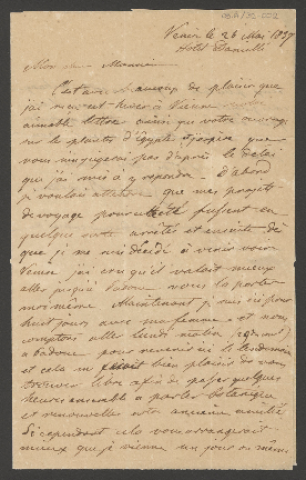 Venise le 26 Mai 1857
Hotel Danielli
Mon cher Monsieur
C'est avec beaucoup de plaisir que
j'ai reçu cet hiver à Vienne votre
aimable lettre ainsi que votre ouvrage
sur les plantes d'Égypte j'espère que
vous ne jugerez pas d'après le délai
que j'ai mis à y répondre. D'abord
je voulais attendre que mes projets
de voyage pour cet été fussent en
quelque sorte arrêtés et ensuite dès
que je me suis décidé à venir voir
Venise j'ai cru qu'il valait mieux
aller jusqu'à Padoue vous la porter
moi même. Maintenant je suis ici pour
huit jours avec ma femme et nous
comptons aller lundi matin
à Padoue pour revenir ici le lendemain
et cela me ferait bien plaisir de vous
trouver libre afin de passer quelques
heures ensemble à parler botanique
et renouveller notre ancienne amitié
Si cependant cela vous arrangerait
mieux que je vienne un jour ou même